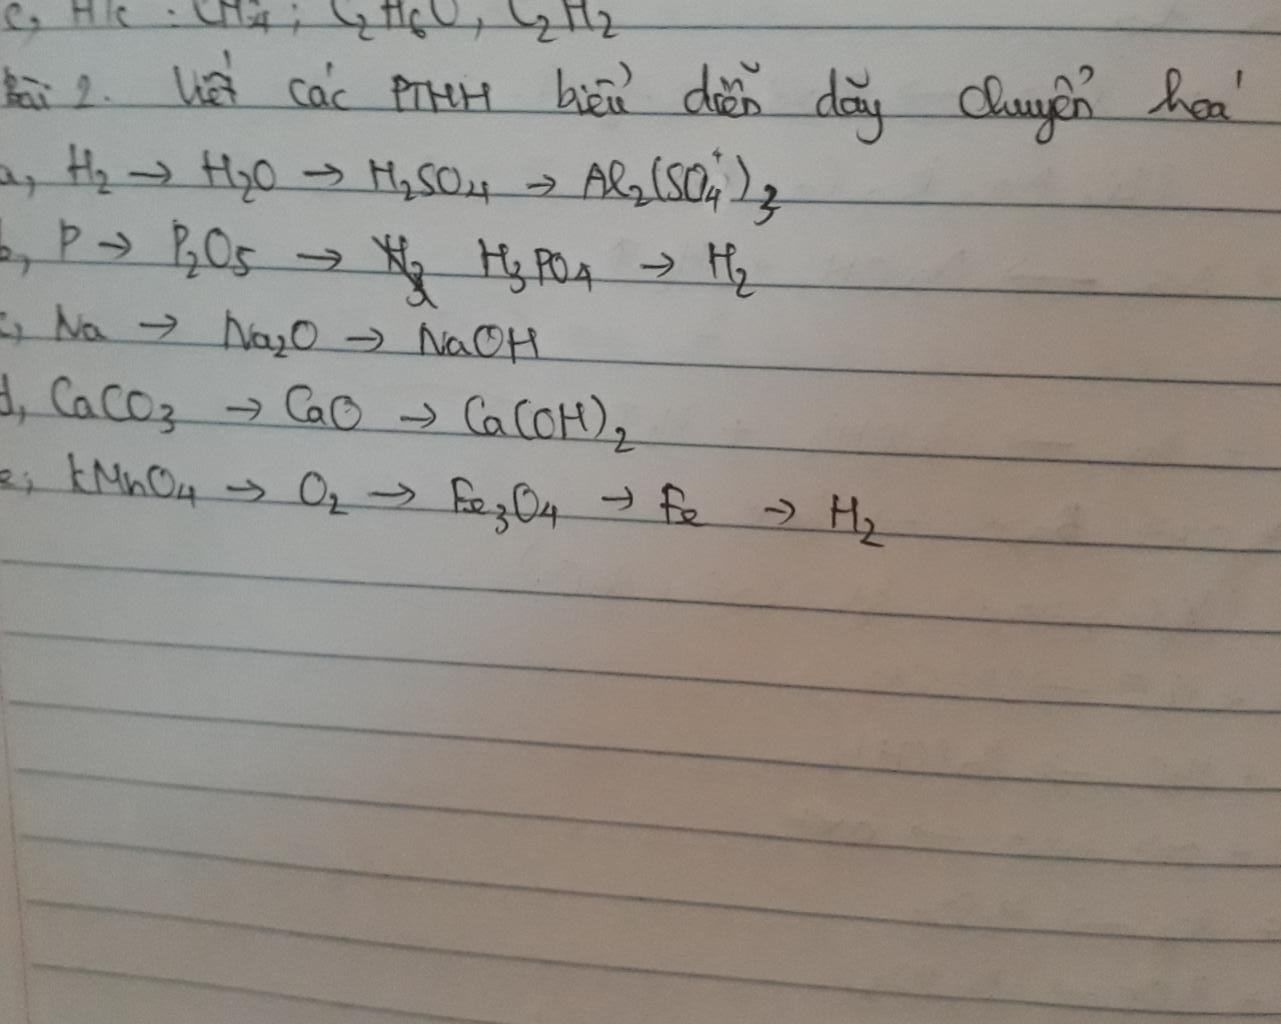 c, H/c : CH4 ; C2H6O, C2H2
Bài 2. Viết các PTHH biểu diễn dãy chuyển hoá
a, H2 → H2O → H2SO4 → Al2(SO4)3
b, P → P2O5 → H3PO4 → H2
c, Na → Na2O → NaOH
d, CaCO3 → CaO → Ca(OH)2
e, KMnO4 → O2 → Fe3O4 → Fe → H2